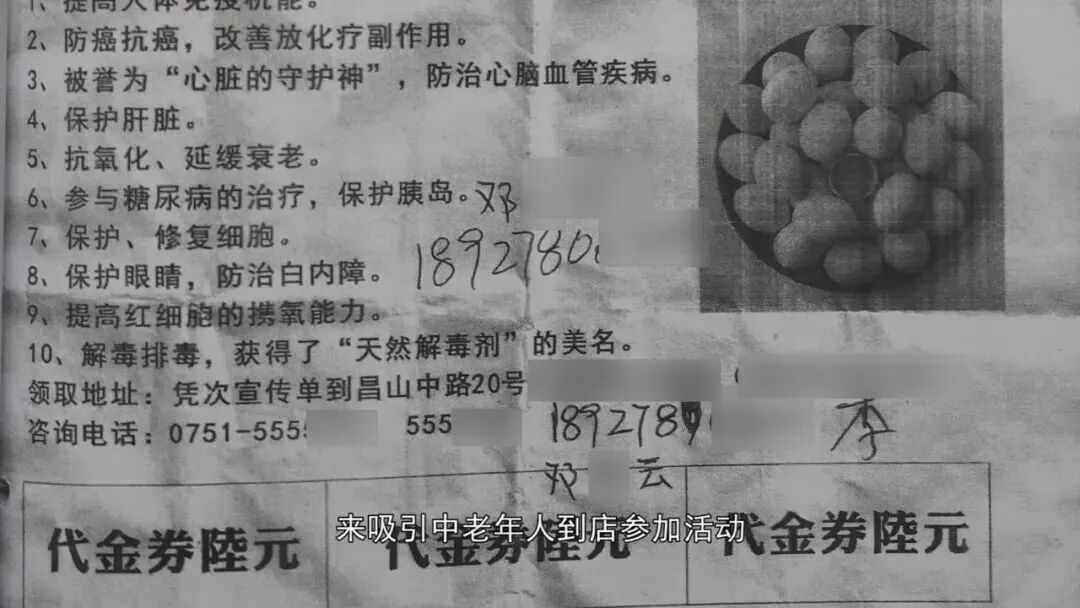 1、提高人体免疫机能。
2、防癌抗癌，改善放化疗副作用。
3、被誉为“心脏的守护神”，防治心脑血管疾病。
4、保护肝脏。
5、抗氧化、延缓衰老。
6、参与糖尿病的治疗，保护胰岛。邓
7、保护、修复细胞。
1892780
8、保护眼睛，防治白内障。
9、提高红细胞的携氧能力。
10、解毒排毒，获得了“天然解毒剂”的美名。
领取地址：凭次宣传单到昌山中路20号
咨询电话：0751-555 555 1892789 李
邓 云
代金券陸元 代金券陸元 代金券陸元
来吸引中老年人到店参加活动